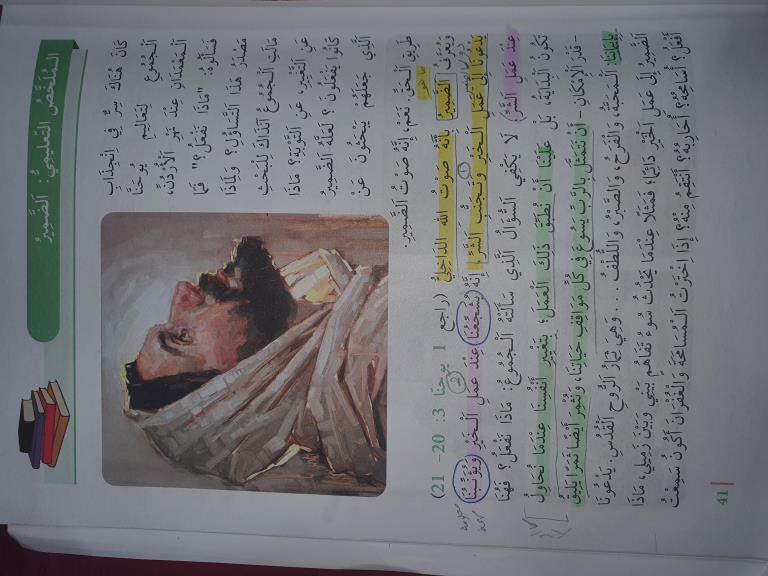 المُلَخَّصُ التَّعليمِيُّ: الضَّمِيرُ
كَانَ هُنَاكَ سِرٌّ فِي انْجِذَابِ
الْجُمُوعِ لِتَعَالِيمِ يُوحَنَّا
الْمَعْمَدَانِ عِنْدَ نَهْرِ الْأُرْدُنِّ،
فَسَأَلُوهُ: "مَاذَا نَفْعَلُ؟" فَمَا
مَصْدَرُ هَذَا التَّسَاؤُلِ؟ وَلِمَاذَا
مَالَتِ الْجُمُوعُ آنَذَاكَ لِلْبَحْثِ
عَنِ التَّغْيِيرِ، عَنِ التَّوْبَةِ؟ مَاذَا
كَانُوا يَفْعَلُونَ؟ لَعَلَّهُ الضَّمِيرُ
الَّذِي جَعَلَهُمْ يَبْحَثُونَ عَنْ
طَرِيقِ الْحَقِّ. نَعَمْ، إِنَّهُ صَوْتُ الضَّمِيرِ.
ما هو
وَيُعَرَّفُ الضَّمِيرُ بِأَنَّهُ صَوْتُ اللهِ الدَّاخِلِيُّ (رَاجِع 1 يُوحَنَّا 3: 20- 21)
يَدْعُونَا إِلَى عَمَلِ الْخَيْرِ وَتَجَنُّبِ الشَّرِّ، إِنَّهُ يُشَجِّعُنَا عِنْدَ عَمَلِ الْخَيْرِ وَيُؤَنِّبُنَا
عِنْدَ عَمَلِ الشَّرِّ لَا يَكْفِي السُّؤَالُ الَّذِي سَأَلَتْهُ الْجُمُوعُ: مَاذَا نَفْعَلُ؟ فَهُنَا
تَكُونُ الْبِدَايَةُ، بَلْ عَلَيْنَا أَنْ نُطَبِّقَ ذَلِكَ الْعَمَلَ؛ بِتَغْيِيرِ أَنْفُسِنَا عِنْدَمَا نُحَاوِلُ
-قَدْرَ الْإِمْكَانِ- أَنْ نَتَمَثَّلَ بِالرَّبِّ يَسُوعَ فِي كُلِّ مَوَاقِفِ حَيَاتِنَا، وَنُثْمِرُ أَيْضًا ثَمَرًا يَلِيقُ
بِإِيمَانِنَا: الْمَحَبَّةُ، وَالْفَرَحُ، وَالصَّبْرُ، وَاللُّطْفُ .... وَهِيَ ثِمَارُ الرُّوحِ الْقُدُسِ يَدْعُونَا
الضَّمِيرُ إِلَى عَمَلِ الْخَيْرِ دَائِمًا، فَمَثَلًا عِنْدَمَا يَحْدُثُ سُوءُ تَفَاهُمٍ بَيْنِي وَبَيْنَ زَمِيلِي، مَاذَا
أَفْعَلُ؟ أُسَامِحُهُ؟ أُحَاوِرُهُ؟ أَنْتَقِمُ مِنْهُ؟ إِذَا اخْتَرْتُ الْمُسَامَحَةَ وَالْغُفْرَانَ أَكُونُ سَمِعْتُ
41